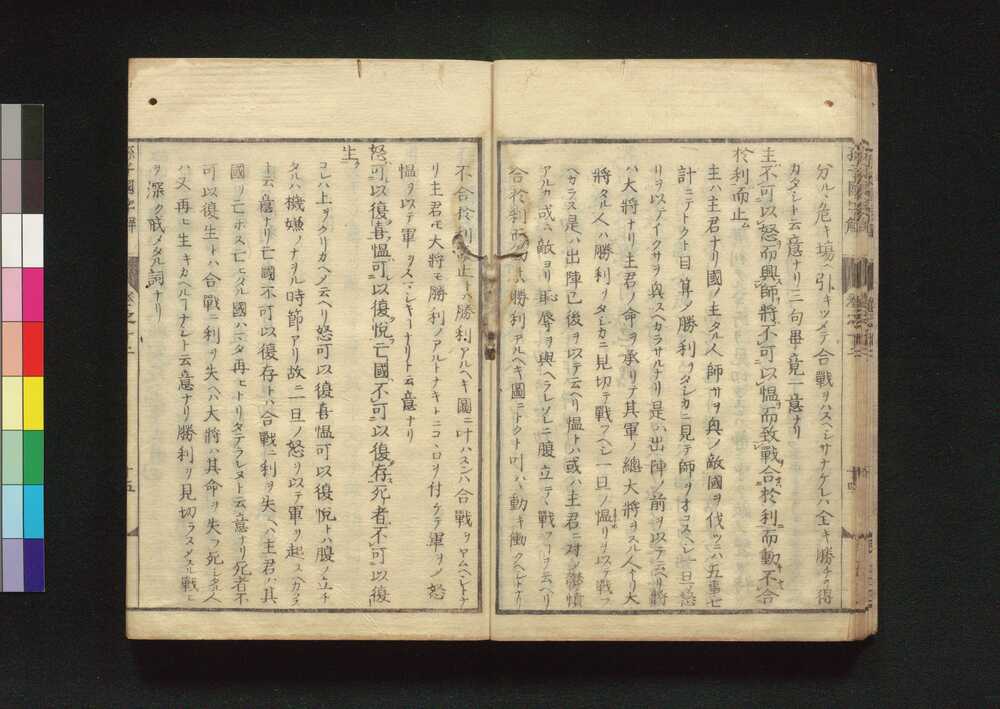 分ルヽ危キ場ヘ引キツメテ合戰ヲハスヘシサナケレハ全キ勝チヲ得
カタシト云意ナリ三句畢竟一意ナリ
主不可以怒而興師將不可以慍而致戰合於利而動不合
於利而止
主ハ主君ナリ國ノ主タル人師サヲ興ノ敵國ヲ伐ツニハ五事七
計ニテトクト目算ノ勝利ヲタシカニ見テ師ヲオコスヘシ一旦ノ怒
リヲ以テイクサヲ興スヘカラサルナリ是ハ出陣ノ前ヲ以テ云ヘリ將
ハ大將ナリ主君ノ命ヲ承リテ其軍ノ總大將ヲスル人ナリ大
將タル人ハ勝利ヲタシカニ見切テ戰フヘシ一旦ノ慍リヲ以テ戰フ
ヘカラス是ハ出陣已後ヲ以テ云ヘリ慍トハ或ハ主君ニ対シ鬱憤
アルカ或ハ敵ヨリ恥辱ヲ與ヘラレソレニ腹立テヽ戰フヿヲ云ヘリ
合於利而動トハ勝利アルヘキ圖ニトクト叶ハヽ動キ働クヘシトナリ
不合於利而止トハ勝利アルヘキ圖ニ叶ハスンハ合戰ヲヤムヘシトナ
リ主君モ大將モ勝利ノアルトナキトニコヽロヲ付ケテ軍ヲシ怒
慍ヲ以テ軍ヲスマシキヿナリト云意ナリ
怒可以復喜慍可以復悅亡國不可以復存死者不可以復
生
コレハ上ヲクリカヘシ云ヘリ怒可以復喜慍可以復悅トハ腹ノ立チ
タルハ機嫌ノナヲル時節アリ故ニ一旦ノ怒リヲ以テ軍ヲ起スヘカラス
ト云意ナリ亡國不可以復存トハ合戰ニ利ヲ失ヘハ主君ハ其
國ヲ亡ホス亡ヒタル國ハマタ再ヒトリタテラレヌト云意ナリ死者不
可以復生トハ合戰ニ利ヲ失ヘハ大將ハ其命ヲ失フ死シタル人
ハ又再ヒ生キカヘルヿナシト云意ナリ勝利ヲ見切ラスメスル戰ヒ
ヲ深ク戒メタル詞ナリ
孫子國字解
十五